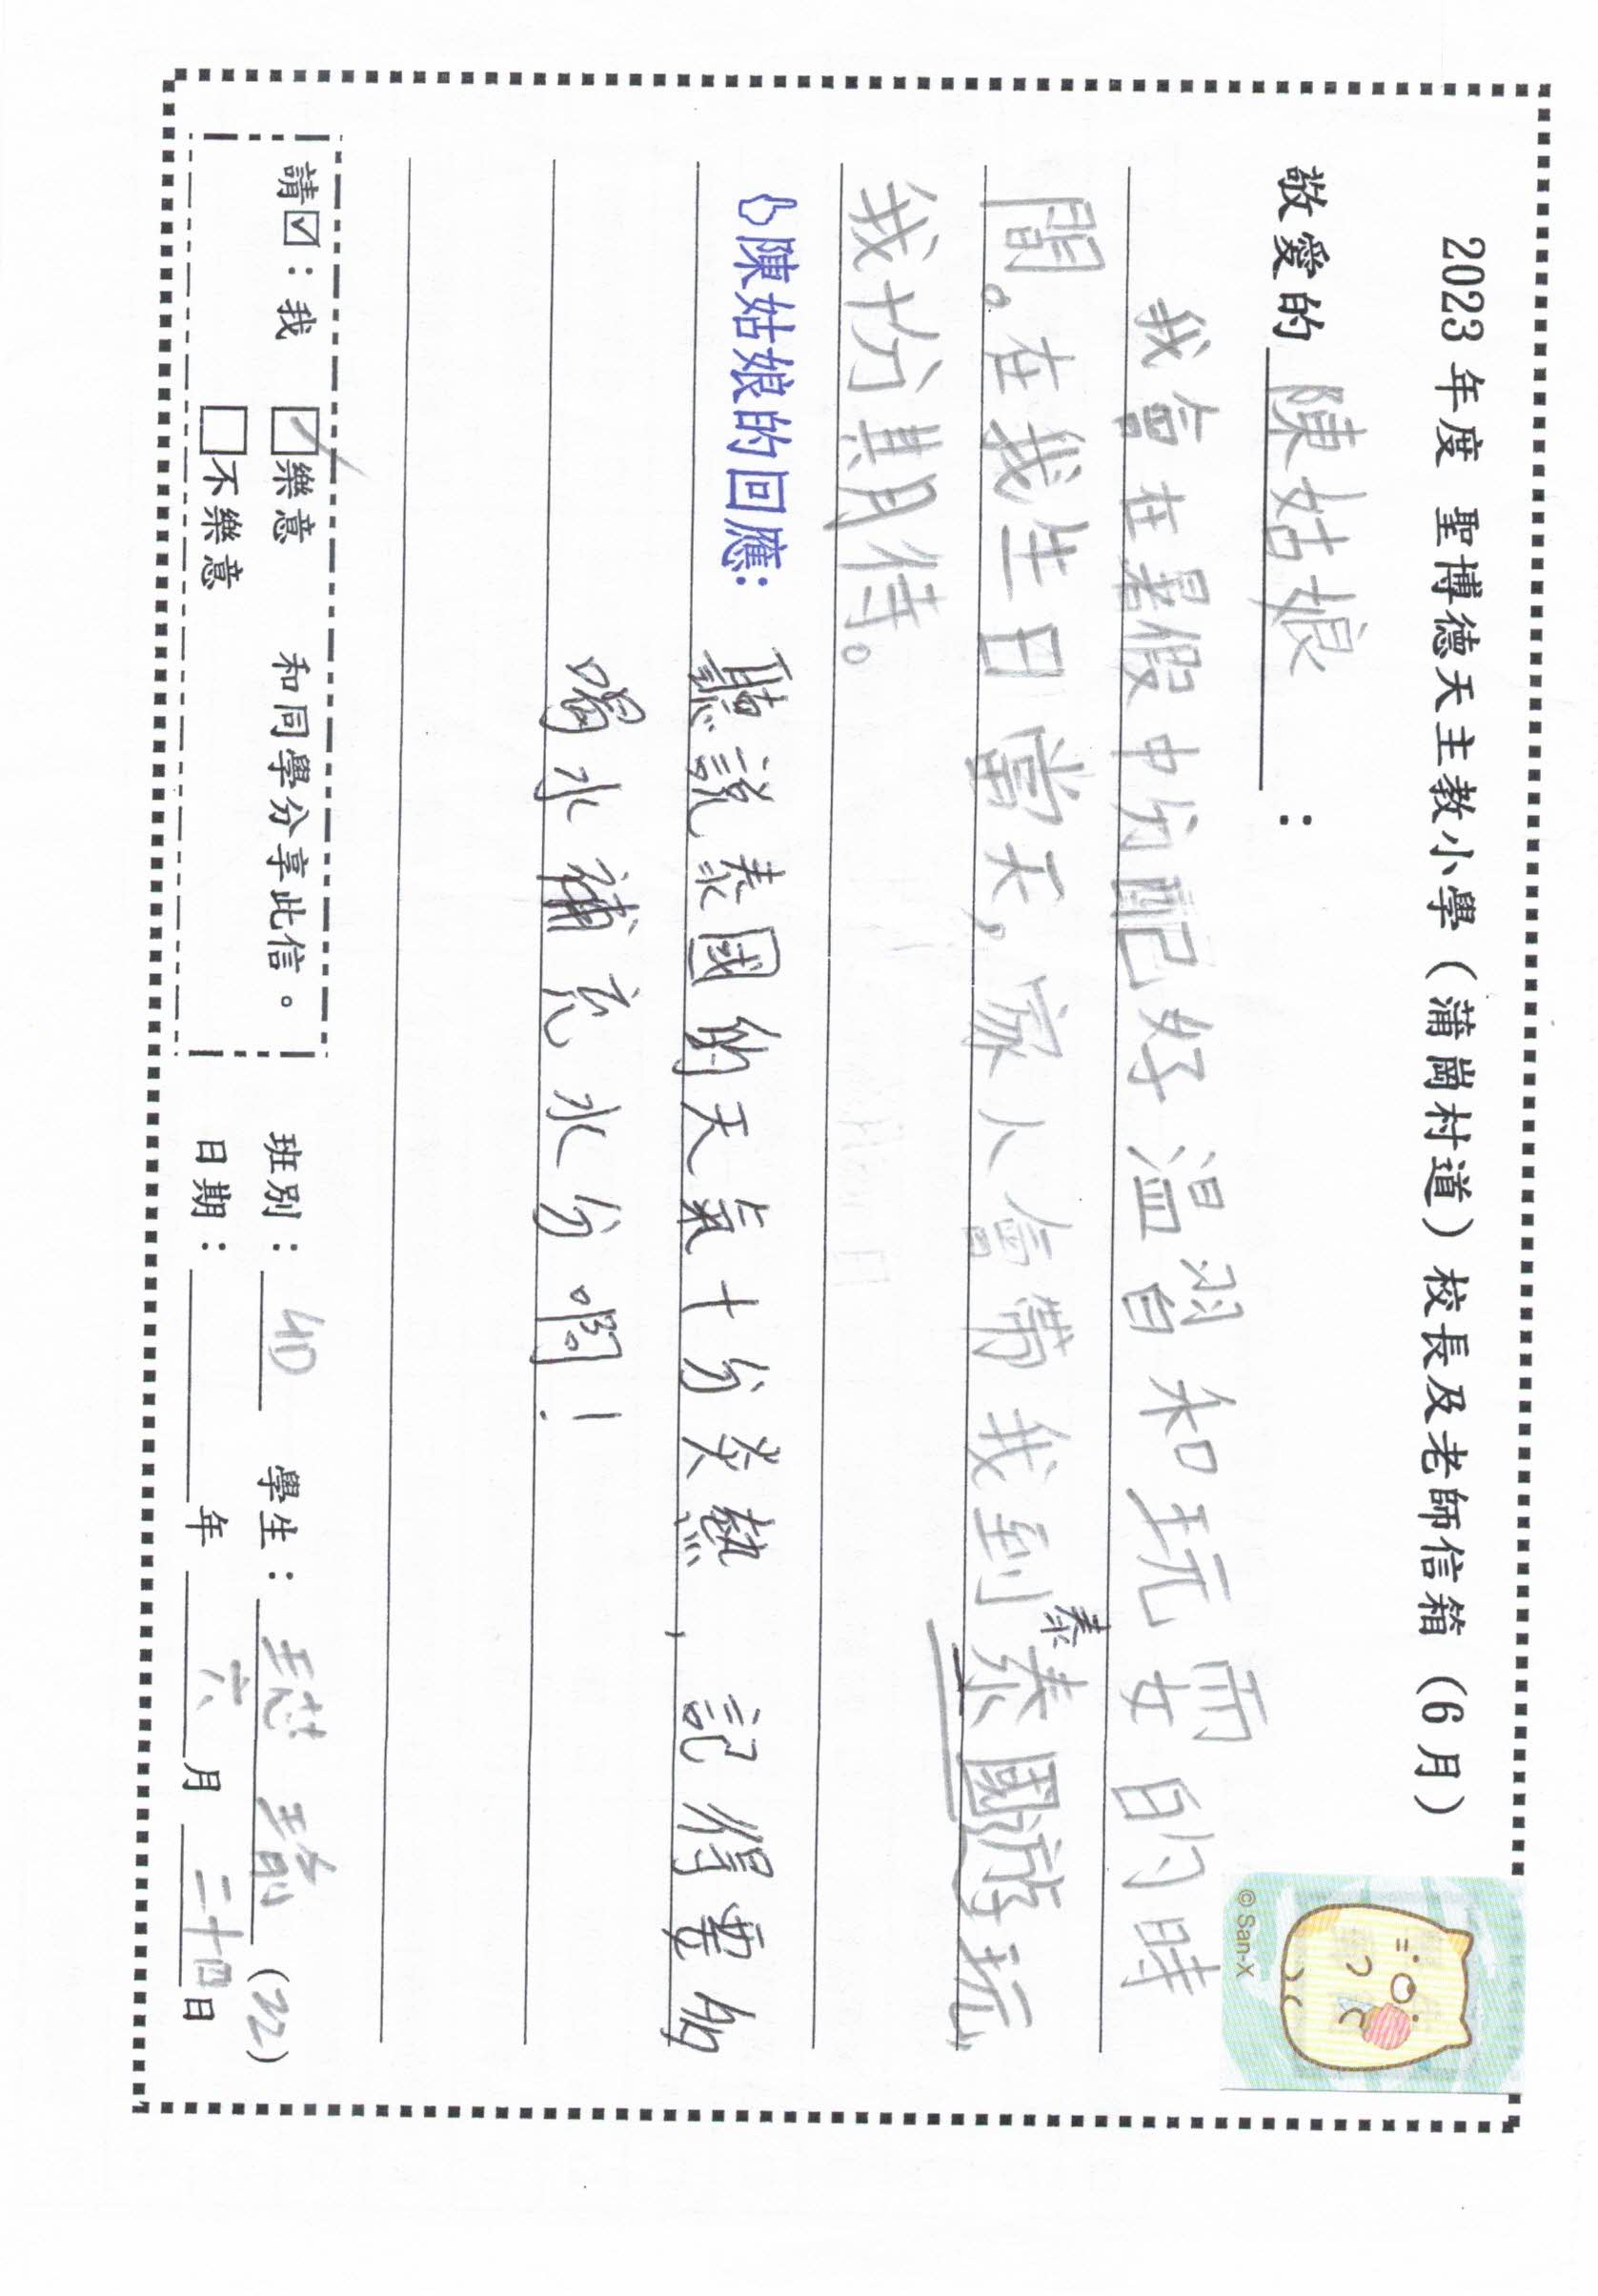 2023 年度 聖博德天主教小學（蒲崗村道）校長及老師信箱（6 月）
© San-X
敬愛的 陳姑娘 ：
我會在暑假中分配好溫習和玩耍的時
間。在我生日當天，家人會帶我到泰國游玩，
泰
我十分期待。
陳姑娘的回應：
聽說泰國的天氣十分炎熱，記得要多
喝水補充水分啊！
請☑：我 ☑樂意 和同學分享此信。
□不樂意
班別： 4D 學生： (22)
日期： 年 六 月 二十四 日